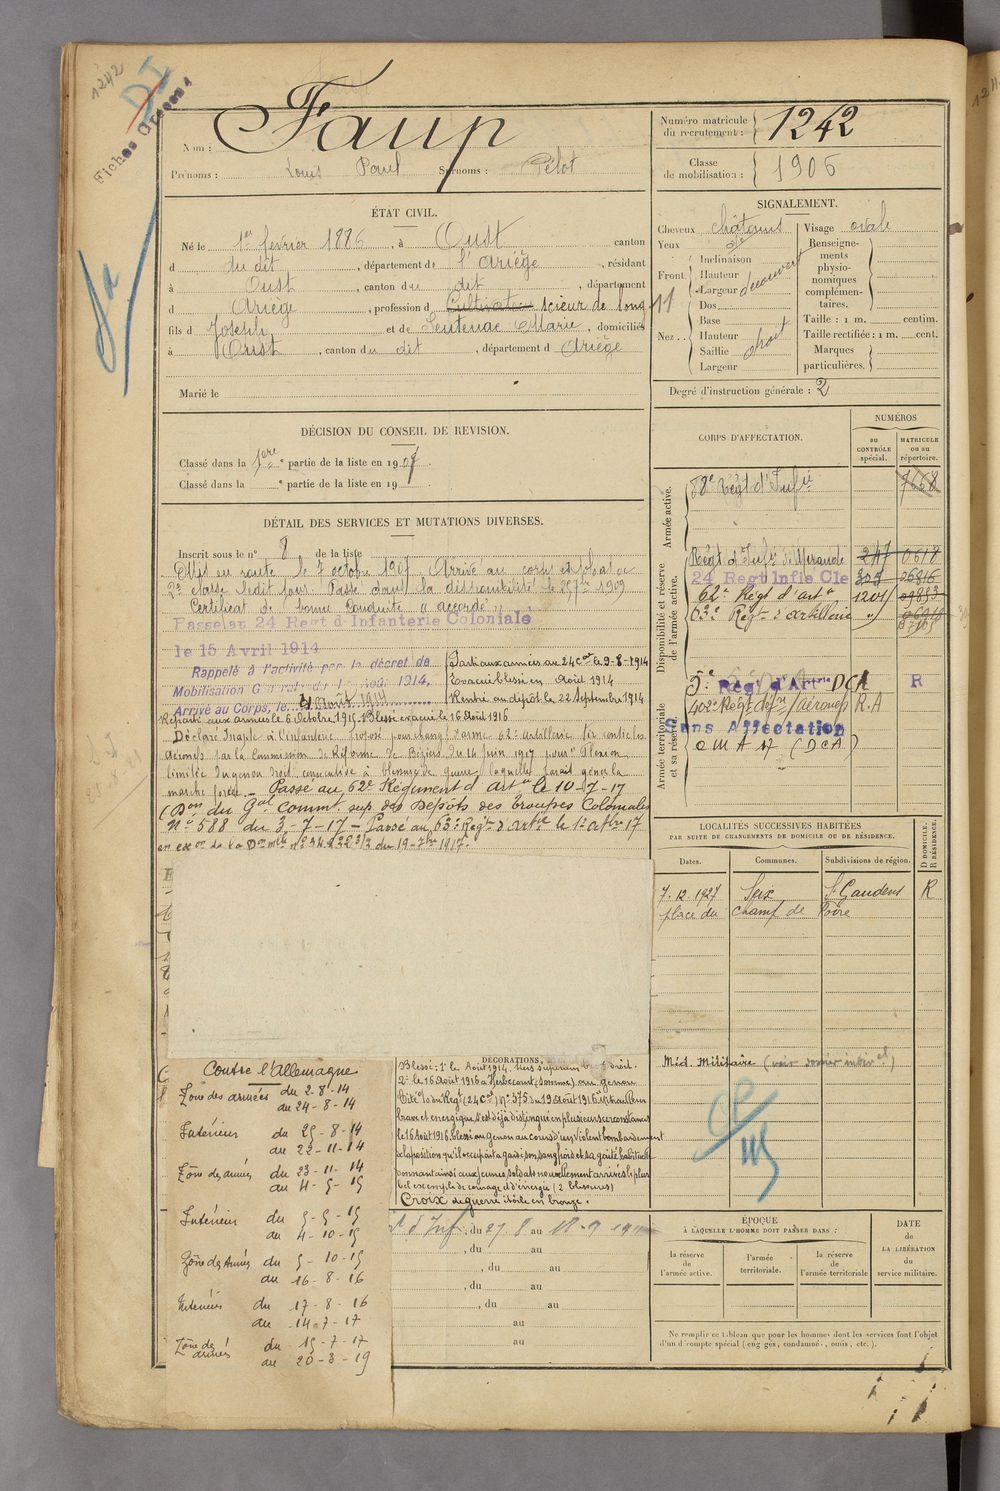 1242
DI
Fiches
Nom : Faup
Prénoms : Louis Paul Surnoms : Pélot
Numéro matricule du recrutement : 1242
Classe de mobilisation : 1906
ÉTAT CIVIL.
Né le 1er février 1886, à Oust canton
d du dit, département de l'Ariège, résidant
à Oust, canton du dit, département
d Ariège, profession d Cultivateur scieur de long
fils d Joseph et de Sentenac Marie, domiciliés
à Oust, canton du dit, département d Ariège
Marié le
SIGNALEMENT.
Cheveux châtains
Yeux
Front Inclinaison
Hauteur
Largeur découvert
Nez . . Dos
Base
Hauteur
Saillie droit
Largeur
Visage ovale
Renseignements physionomiques complémentaires.
Taille : 1 m. centim.
Taille rectifiée : 1 m. cent.
Marques particulières.
Degré d'instruction générale : 2
DÉCISION DU CONSEIL DE REVISION.
Classé dans la 1ère partie de la liste en 1907.
Classé dans la e partie de la liste en 19 .
DÉTAIL DES SERVICES ET MUTATIONS DIVERSES.
Inscrit sous le n° 8 de la liste
Mis en route le 7 octobre 1907 Arrivé au corps et soldat de
2e classe ledit jour. Passé dans la disponibilité le 25 7bre 1909
Certificat de bonne Conduite "accordé"
Passé au 24 Regt d'Infanterie Coloniale
le 15 Avril 1914
Rappelé à l'activité par le décret de
Mobilisation Générale du 1er Août 1914,
Arrivé au Corps, le 4 Août 1914
Parti aux armées au 24 Cal le 9-8-1914
Evacué blessé en Août 1914
Rentré au dépôt le 22 Septembre 1914
Réparti aux armées le 6 Octobre 1915. Blessé évacué le 16 Août 1916
Déclaré Inapte à l'infanterie proposé pour changt d'arme 62e artillerie tir contre les
aéronefs par la Commission de Réforme de Béziers du 14 juin 1917 pour "Flexion
limitée du genou droit, consécutive à blessure de guerre laquelle parait gêner la
marche forcée. — Passé au 62e Régiment d'artie le 10-7-17
(Don du Gal Commt. sup. des Dépôts des Troupes Coloniales
N° 588 du 3-7-17 — Passé au 63e Regt d'Artie le 1er 7bre 17
en exon de la Don mlle n° 34.232 3/3 du 19-7bre 1917.
CORPS D'AFFECTATION.
NUMÉROS
au CONTRÔLE spécial.
MATRICULE ou au répertoire.
Armée active.
88e Régt d'Infie 7668
Disponibilité et réserve de l'armée active.
Régt d'Infie de Mirande 247 0618
24 Regt Infie Cle 305 26816
62e Régt d'arte 1204 09893
63e Régt d'artillerie "
Armée territoriale et sa réserve.
5e Régt d'Artrie DCA R
402e Régt d'Aéronefs R.A
Sans Affectation
O M A 17 (DCA)
LOCALITÉS SUCCESSIVES HABITÉES
PAR SUITE DE CHANGEMENTS DE DOMICILE OU DE RÉSIDENCE.
Dates. Communes. Subdivisions de région.
D DOMICILE. R RÉSIDENCE.
7.12.1927 Seix St Gaudens R
place du Champ de Foire
Méd. Militaire
Contre l'Allemagne
Zone des armées du 2-8-14
au 24-8-14
Intérieur du 25-8-14
au 22-11-14
Zône des armées du 23-11-14
au 4-5-15
Intérieur du 5-5-15
au 4-10-15
Zône des Armées du 5-10-15
au 16-8-16
Intérieur du 17-8-16
au 14-7-17
Zône des armées du 15-7-17
au 20-3-19
DÉCORATIONS,
Blessé: 1° le Août 1914,
2° le 16 Août 1916 à Herbécourt (Somme) au Genou
Cité à du Regt (24 Cal) N° 575 du 19 Août 1916 "Mitrailleur
brave et énergique, s'est déjà distingué en plusieurs circonstances
le 16 Août 1916, blessé au genou au cours d'un violent bombardement
de la position qu'il occupait a gardé son sang froid et sa gaité habituelle
donnant ainsi aux jeunes soldats nouvellement arrivés le plus
bel exemple de courage et d'énergie (2 blessures)
Croix de guerre étoile en bronze.
d'Inf, du 27.8 au 18-9
, du au
, du au
, du au
, du au
au
au
ÉPOQUE
À LAQUELLE L'HOMME DOIT PASSER DANS :
la réserve de l'armée active.
l'armée territoriale.
la réserve de l'armée territoriale
DATE de LA LIBÉRATION du service militaire.
Ne remplir ce tableau que pour les hommes dont les services font l'objet
d'un décompte spécial (engagés, condamnés, omis, etc.).